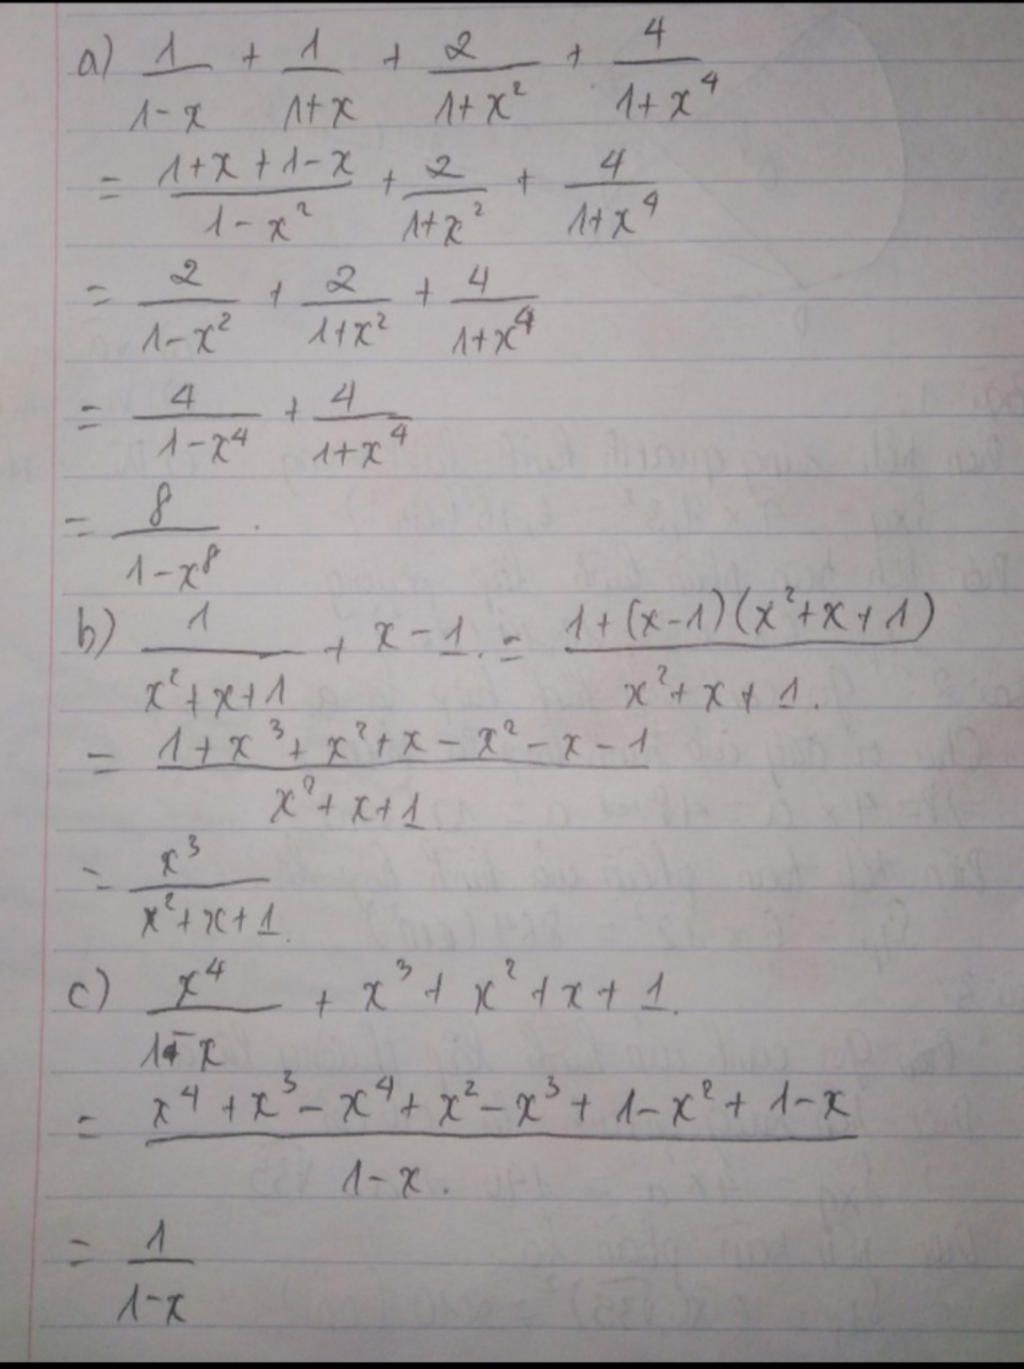 a) 1/(1-x) + 1/(1+x) + 2/(1+x²) + 4/(1+x⁴)
= (1+x+1-x)/(1-x²) + 2/(1+x²) + 4/(1+x⁴)
= 2/(1-x²) + 2/(1+x²) + 4/(1+x⁴)
= 4/(1-x⁴) + 4/(1+x⁴)
= 8/(1-x⁸) .
b) 1/(x²+x+1) + x-1. = (1+(x-1)(x²+x+1))/(x²+x+1.)
= (1+x³+x²+x-x²-x-1)/(x²+x+1)
= x³/(x²+x+1.)
c) x⁴/(1-x) + x³+x²+x+1.
= (x⁴+x³-x⁴+x²-x³+1-x²+1-x)/(1-x.)
= 1/(1-x)